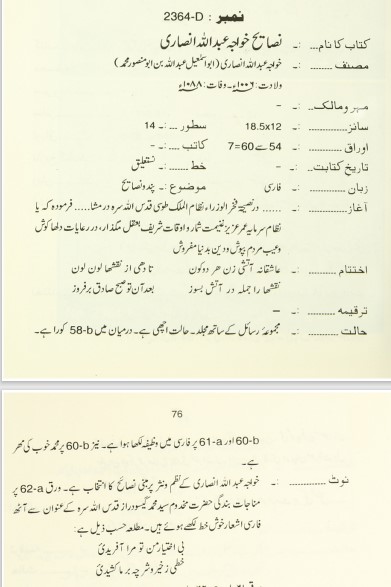 نمبر : 2364-D
کتاب کا نام ...... :۔ نصایح خواجہ عبداللہ انصاری
مصنف ......... :۔ خواجہ عبداللہ انصاری (ابو اسمٰعیل عبداللہ بن ابو منصور محمد)
ولادت: ۱۰۰۶ء۔ وفات: ۱۰۸۸ء
مہر و مالک.... :۔ –
سائز............... :۔ 18.5x12 سطور .... :۔ 14
اوراق ............ :۔ 54 سے 60=7 کاتب.... :۔ –
تاریخ کتابت.. :۔ – خط........ :۔ نستعلیق
زبان ............. :۔ فارسی موضوع :۔ پند و نصایح
آغاز............... :۔ ...... در نصیحۃ فخر الوزراء نظام الملک طوسی قدس اللہ سرہ در مشا..... فرمودہ کہ یا
نظام سرمایہ عمر عزیز غنیمت شمار و اوقات شریف بغفل مگذار، در رعایات دلہا کوش
و عیب مردم بپوش و دین بدنیا مفروش
اختتام ........... :۔ عاشقانہ آتشی زن ہر دو کون تا دھی از نقشہا لون لون
نقشہا را جملہ در آتش بسوز بعد آن تو صبح صادق بر فروز
ترقیمہ ........... :۔ –
حالت ............ :۔ مجموعۂ رسائل کے ساتھ مجلد۔ حالت اچھی ہے۔ درمیان میں 58-b کورا ہے۔
76
60-b اور 61-a پر فارسی میں وظیفہ لکھا ہوا ہے۔ نیز 60-b پر محمد خوب کی مہر
ہے۔
نوٹ .............. :۔ خواجہ عبداللہ انصاری کے نظم و نثر پر مبنی نصائح کا انتخاب ہے۔ ورق 62-a پر
مناجات بندگی حضرت مخدوم سید محمد گیسودراز قدس اللہ سرہ کے عنوان سے آٹھ
فارسی اشعار خوش خط لکھے ہوئے ہیں۔ مطلعہ حسب ذیل ہے:
بی اختیار من تو مرا آفریدئ
خطی ز خیر و شر چہ بر ما کشیدئ